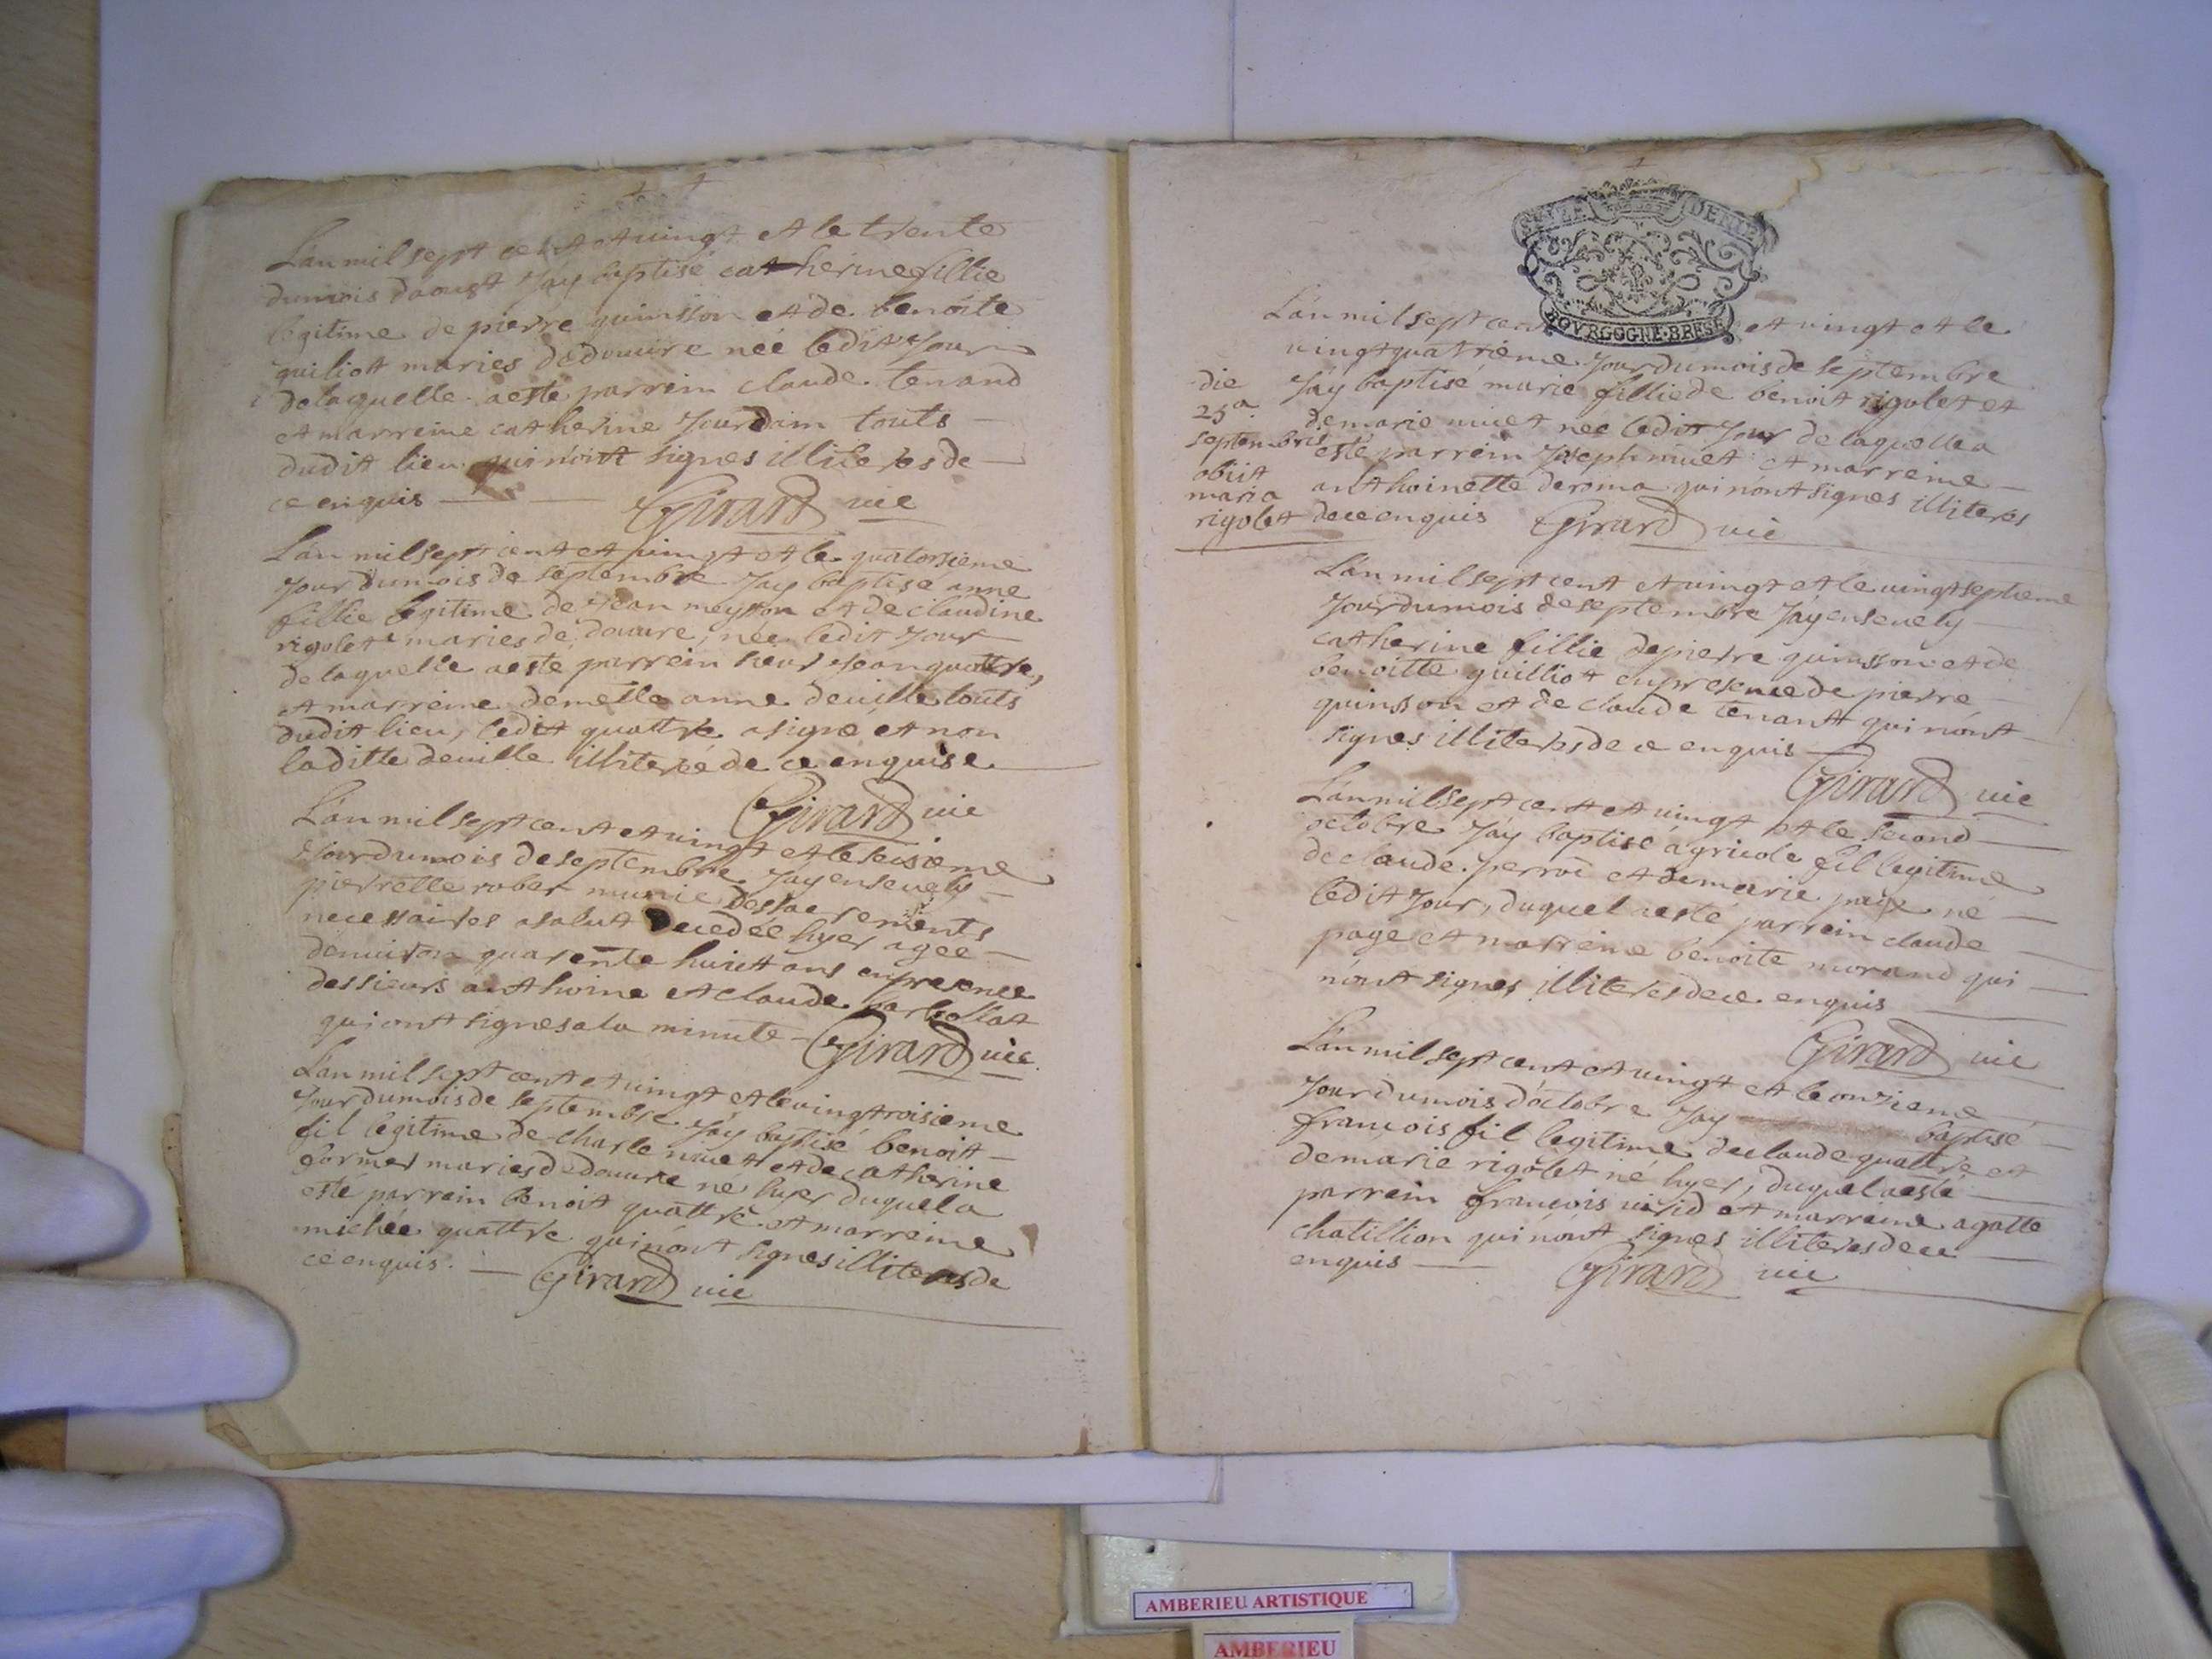 Lan mil sept cent et vingt et le trente
du mois daoust Jay baptisé catherine fillie
legitime de pierre quinsson et de benoite
guiliot maries de douure née ledit Jour
de laquelle a esté parrein claude tenand
et marreine catherine Jourdain touts
dudit lieu qui nont signes illiteres de
ce enquis Girard vic
Lan mil sept cent et vingt et le quatorsieme
Jour du mois de septembre Jay baptisé anne
fillie legitime de Jean meysson et de claudine
rigolet maries de douure, née ledit Jour
de laquelle a esté parrein sieur Jean quattre,
et marreine demelle anne deuille touts
dudit lieu, ledit quattre a signé et non
laditte deuille illiterée de ce enquise
Girard vic
Lan mil sept cent et vingt et le seisieme
Jour du mois de septembre Jay enseuely
pierrette rober munie des sacrements
necessaires a salut decedée hyer agée
denuiron quarente huict ans en presence
des sieurs anthoine et claude
qui ont signes a la minute Girard vic
Lan mil sept cent et vingt et le vingtroisieme
Jour du mois de septembre Jay baptisé benoit
fil legitime de charle niuet et de catherine
maries de douure né hyer duquel a
esté parrein benoit quattre et marreine
michée quattre qui nont signes illiteres de
ce enquis. Girard vic
SEIZE DENIE
BOVRGOGNE·BRESSE
Lan mil sept cent et vingt et le
vingtquatrieme Jour du mois de septembre
Jay baptisé marie fillie de benoit rigolet et
de marie niuet née ledit Jour de laquelle a
esté parrein Joseph niuet et marreine
anthoinette deroma qui nont signes illiteres
de ce enquis Girard vic
die
25a
septembris
obiit
maria
rigolet
Lan mil sept cent et vingt et le vingtseptieme
Jour du mois de septembre Jay enseuely
catherine fillie de pierre quinsson et de
benoitte guilliot en presence de pierre
quinsson et de claude tenant qui nont
signes illiteres de ce enquis
Girard vic
Lan mil sept cent et vingt et le second
octobre Jay baptisé agricole fil legitime
de claude et de marie page né
ledit Jour, duquel a esté parrein claude
page et marreine benoite morand qui
nont signes illiteres de ce enquis
Girard vic
Lan mil sept cent et vingt et le onzieme
Jour du mois doctobre Jay baptisé
francois fil legitime de claude quattre et
de marie rigolet né hyer, duquel a esté
parrein francois et marreine agatte
chatillion qui nont signes illiteres de ce
enquis Girard vic
AMBERIEU ARTISTIQUE
AMBERIEU